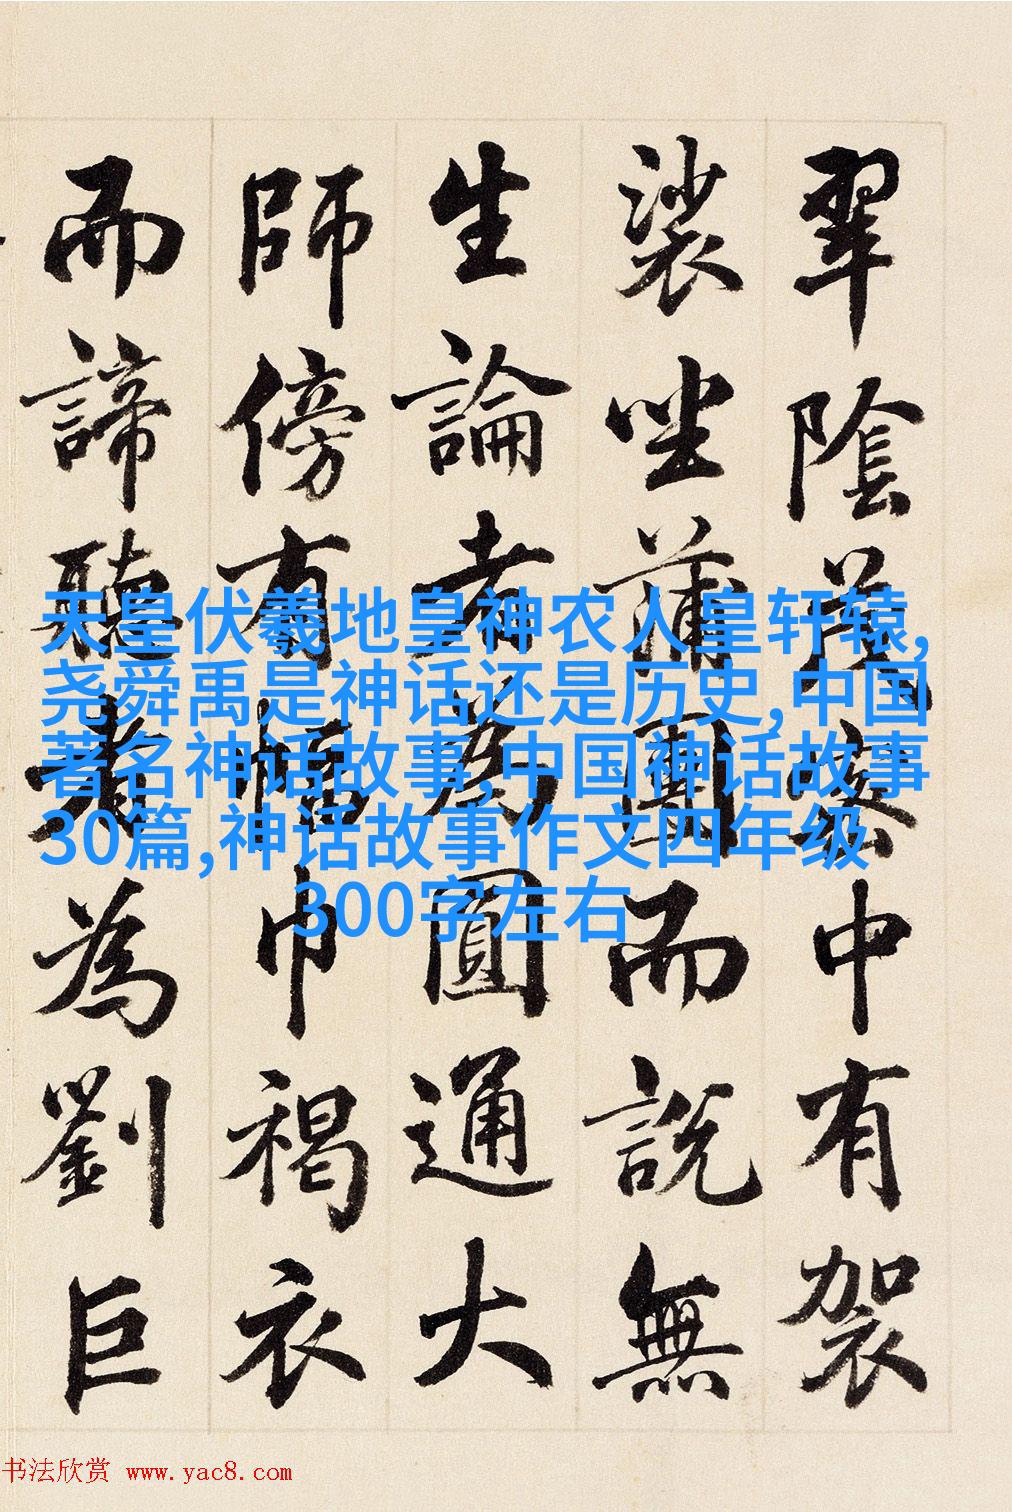 翠陰茂密中有袈
裟坐蒲團而說無
生論者為圓通大
師傍有幅巾褐衣
而諦聽者為劉巨
天皇伏羲地皇神农人皇轩辕,
尧舜禹是神话还是历史,中国
著名神话故事,中国神话故事
30篇,神话故事作文四年级
300字左右
书法欣赏 www.yac8.com